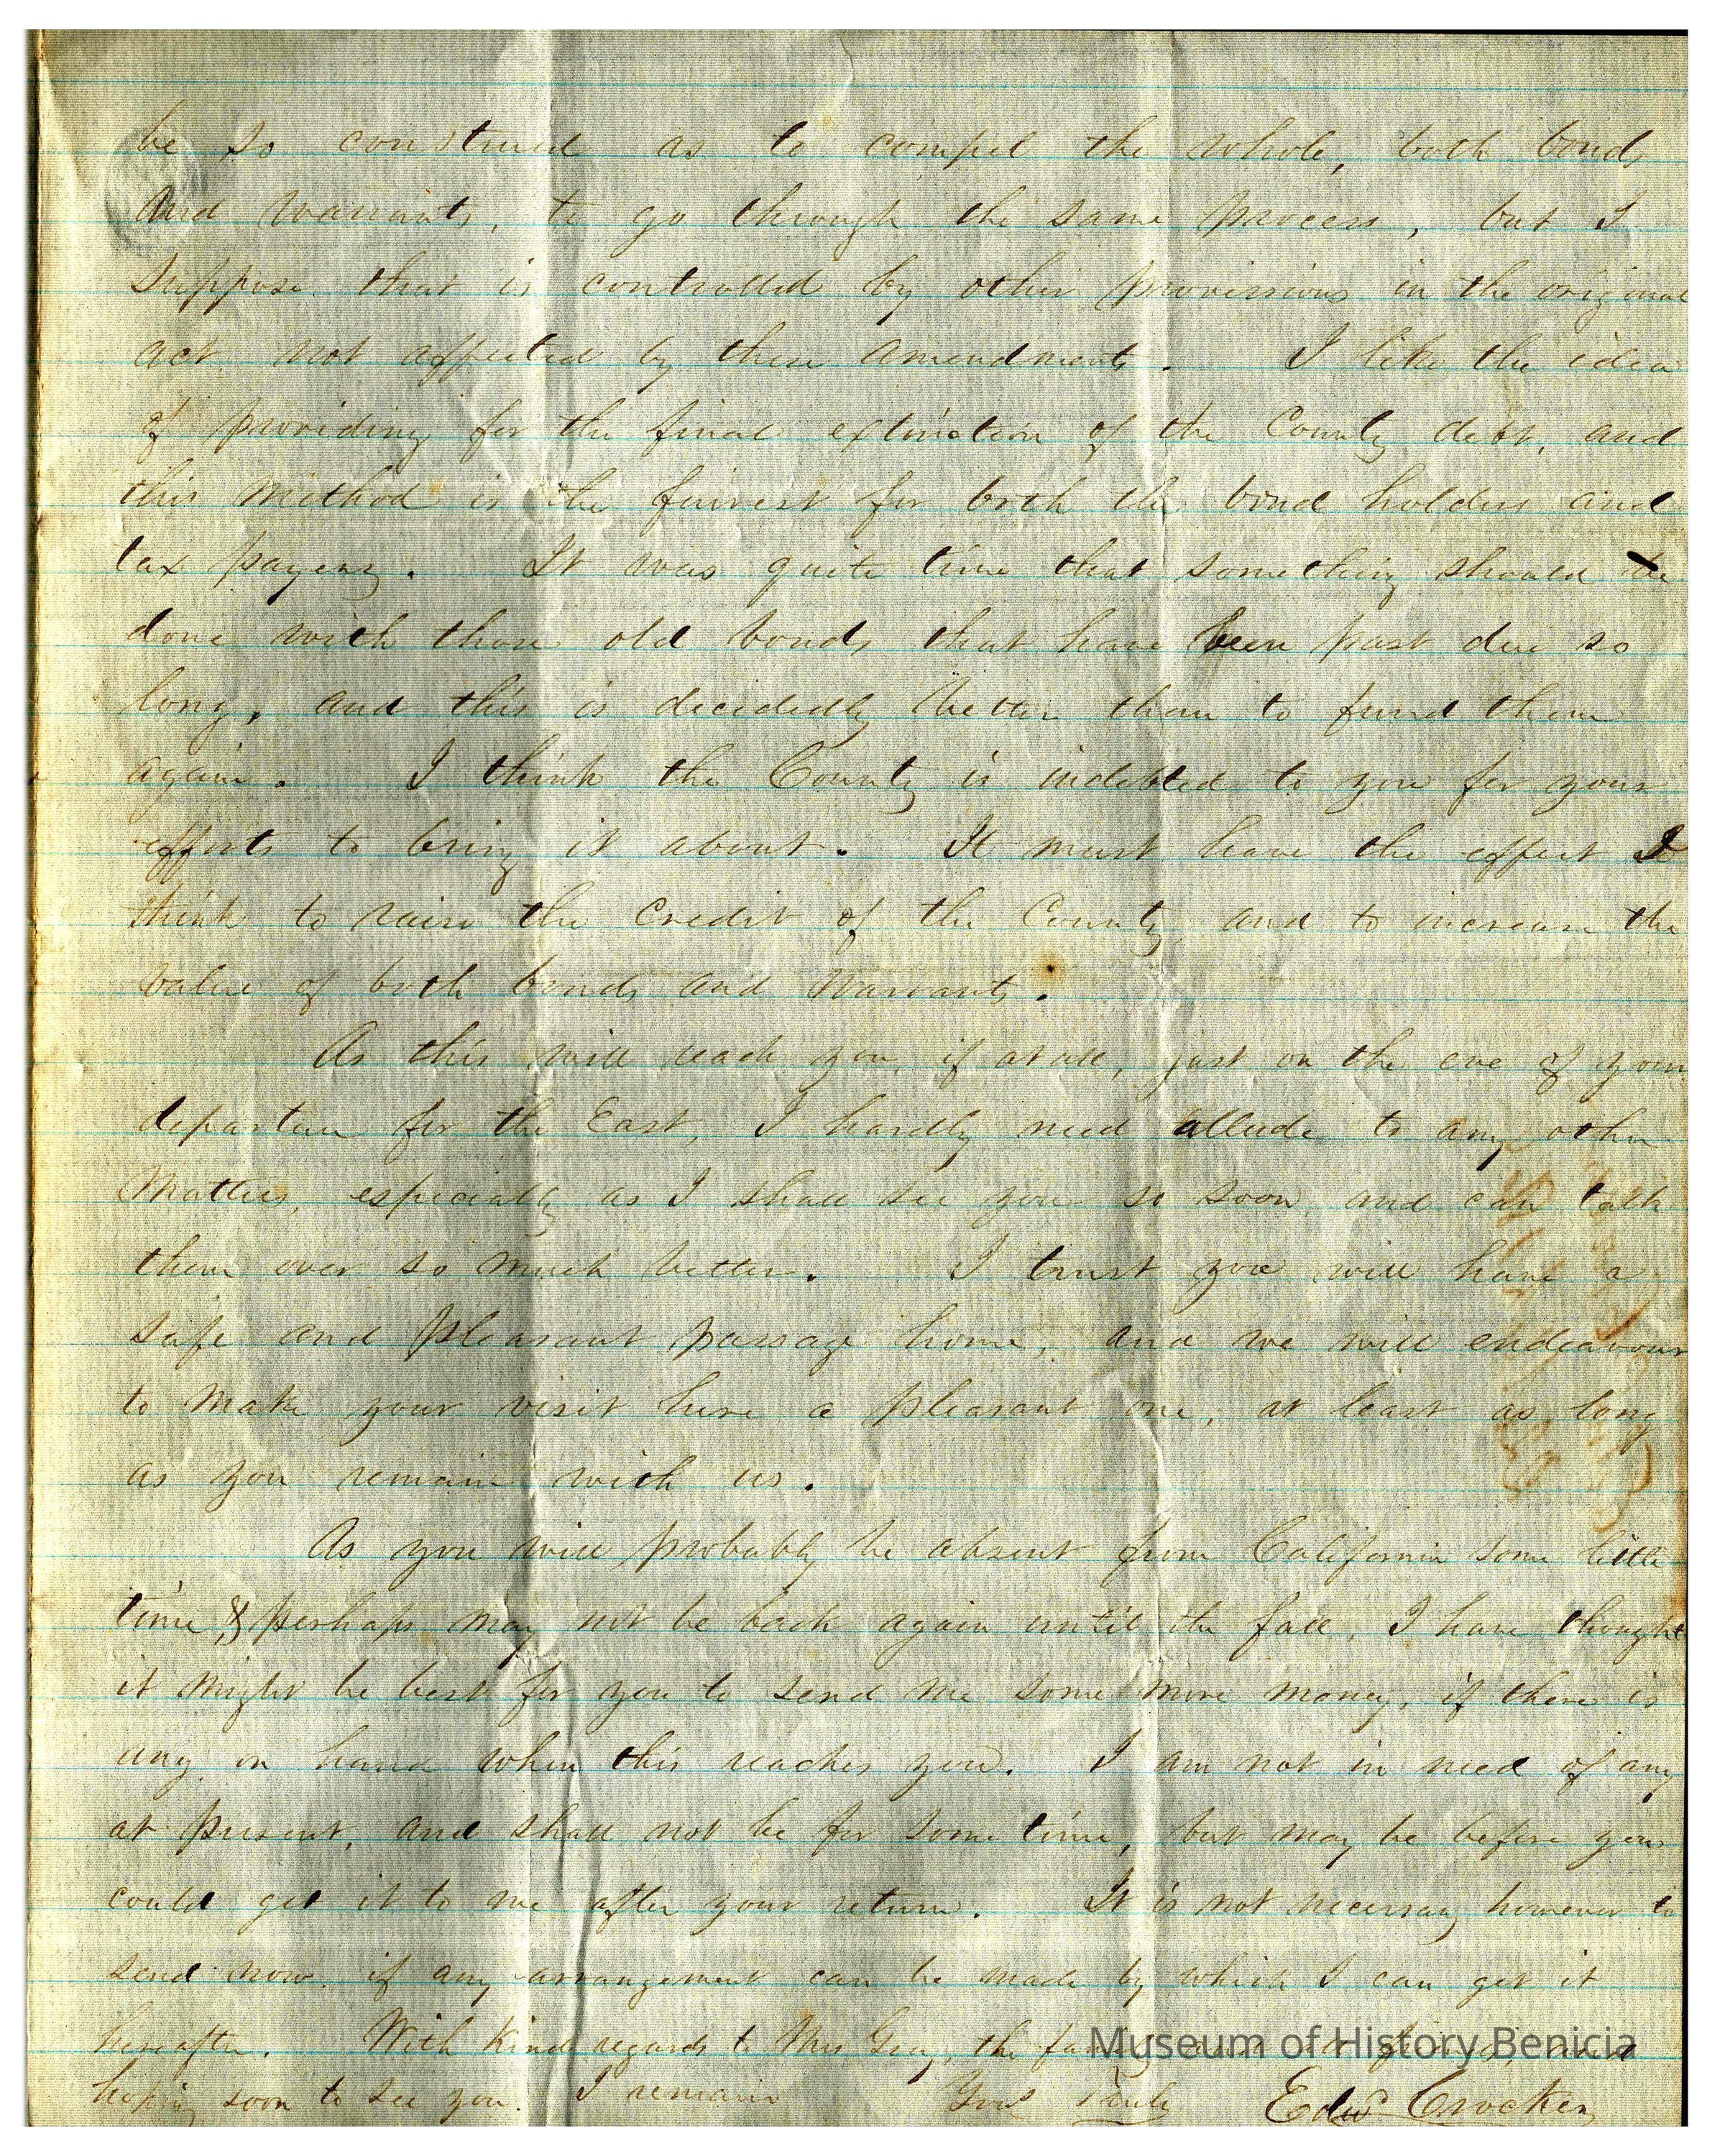 be so construed as to compel the whole, both bonds
and warrants, to go through the same process, but I
suppose that is controlled by other provisions in the original
act not affected by these amendments. I like the idea
of providing for the final extinction of the County debt, and
this method is the fairest for both the bond holders and
tax payers. It was quite time that something should be
done with those old bonds that have been past due so
long, and this is decidedly better than to fund them
again. I think the County is indebted to you for your
efforts to bring it about. It must have the effect I
think to raise the credit of the County, and to increase the
value of both bonds and warrants.
As this will reach you, if at all, just on the eve of your
departure for the East, I hardly need allude to any other
matters, especially as I shall see you so soon, and can talk
them over so much better. I trust you will have a
safe and pleasant passage home, and we will endeavour
to make your visit here a pleasant one, at least as long
as you remain with us.
As you will probably be absent from California some little
time, & perhaps may not be back again until the fall, I have thought
it might be best for you to send me some more money, if there is
any on hand when this reaches you. I am not in need of any
at present, and shall not be for some time, but may be before you
could get it to me after your return. It is not necessary however to
send now if any arrangement can be made by which I can get it
hereafter. With kind regards to Mrs Gray, the
hoping soon to see you. I remain Yours Truly Edwd Crocker
Museum of History Benicia